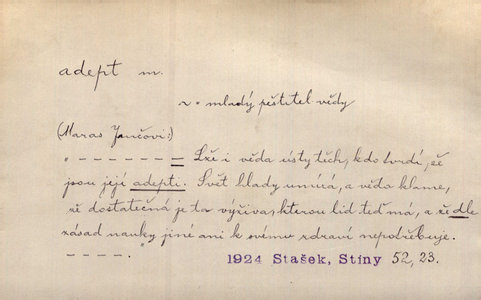 adept m.
~ = mladý pěstitel vědy
(Maras Jančovi:)
" – – – – – – = Lže i věda ústy těch, kdo tvrdí, že
jsou její adepti. Svět hlady umírá, a věda klame,
že dostatečná je ta výživa, kterou lid teď má, a že dle
zásad nauky jiné ani k svému zdraví nepotřebuje.
– – – –. "
1924 Stašek, Stíny 52, 23.